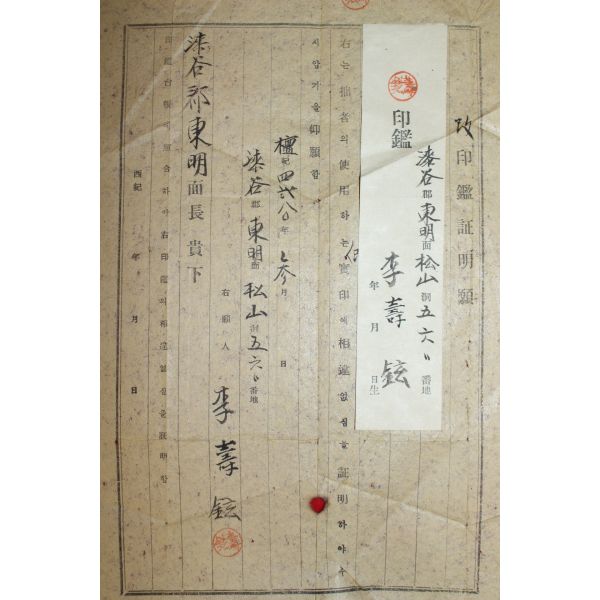 改印鑑証明願
印鑑
漆谷郡東明面松山洞五六〃番地
李壽鉉
年 月 日生
右는拙者의使用하는實印에相違없심을証明하야수
시압기을仰願함
檀紀四 八 年 月 日
漆谷郡東明面松山洞五六〃番地
右願人 李壽鉉
漆谷郡東明面長 貴下
右印鑑의相違없심을証明함
西紀 年 月 日